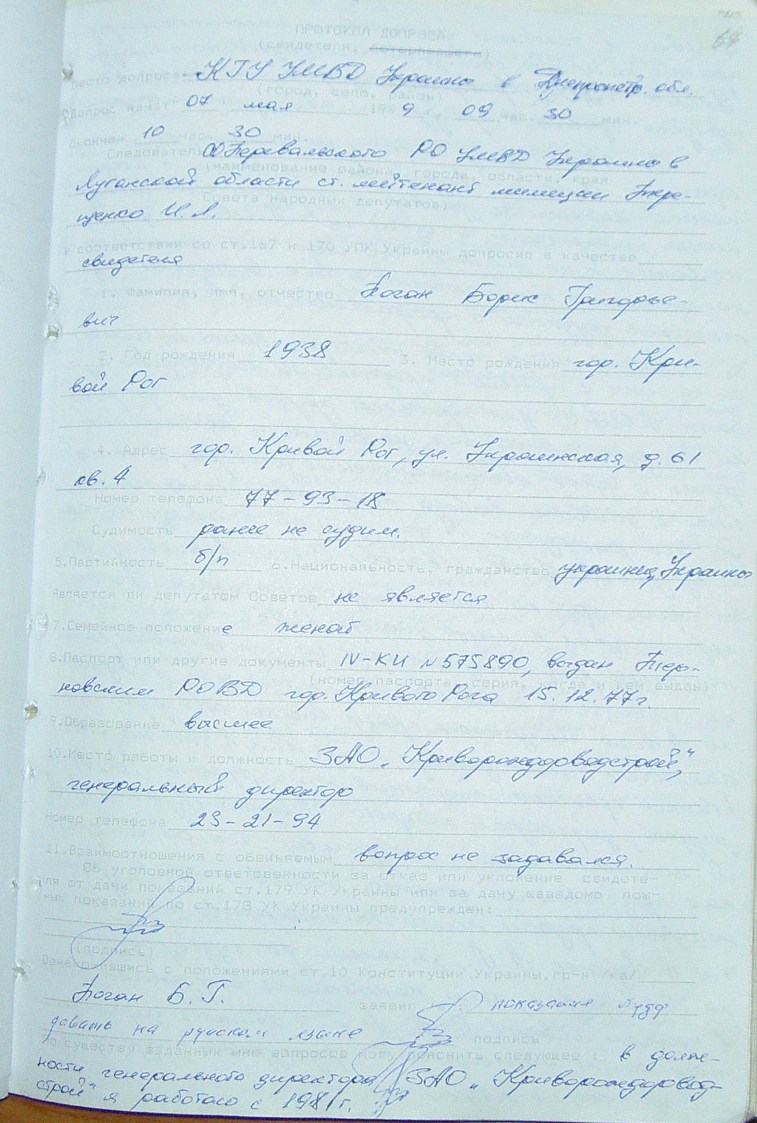 64
ПРОТОКОЛ ДОПРОСА
(свидетеля, потерпевшего)
Место допроса КГУ УМВД Украины в Днепропетр. обл.
(город, село, район)
Допрос начат 07 мая 199 9 г. 09 час. 30 мин.
Окончен 10 час. 30 мин.
Следователь СО Перевальского РО УМВД Украины в
(наименование района, города, области, края
Луганской области ст. лейтенант милиции Тере-
Совета народных депутатов)
щенко И.Л.
в соответствии со ст.167 и 170 УПК Украины допросил в качестве
свидетеля
1. Фамилия, имя, отчество Коган Борис Григорье-
вич
2. Год рождения 1938 3. Место рождения гор. Кри-
вой Рог
4. Адрес гор. Кривой Рог, ул. Украинская, д. 61
кв. 4
Номер телефона 77-93-18
Судимость ранее не судим.
5.Партийность б/п 6.Национальность, гражданство украинец, Украины
Является ли депутатом Советов не является
7.Семейное положение женат
8.Паспорт или другие документы IV-КИ №575890, выдан Тер-
(номер паспорта, серия, когда и кем выдан)
новским РОВД гор. Кривого Рога 15.12.77г.
9.Образование высшее
10.Место работы и должность ЗАО „Криворожагловодстрой",
генеральный директор
Номер телефона 23-21-94
11.Взаимоотношения с обвиняемым вопрос не задавался.
Об уголовной ответственности за отказ или уклонение свидете-
ля от дачи показаний ст.179 УК Украины или за дачу заведомо лож-
ных показаний по ст.178 УК Украины предупрежден:
(подпись)
Ознакомившись с положениями ст.10 Конституции Украины, гр-н /ка/
Коган Б. Г. заявил показания буду
давать на русском языке подпись
По существу заданных мне вопросов могу пояснить следующее: в долж-
ности генерального директора ЗАО
строй" я работаю с 1981г.